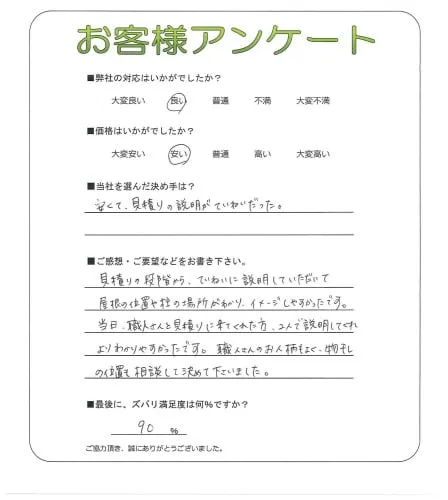 お客様アンケート
■弊社の対応はいかがでしたか？
大変良い 良い 普通 不満 大変不満
■価格はいかがでしたか？
大変安い 安い 普通 高い 大変高い
■当社を選んだ決め手は？
安くて、見積りの説明がていねいだった。
■ご感想・ご要望などをお書き下さい。
見積りの段階から、ていねいに説明していただいて
屋根の位置や柱の場所がわかり、イメージしやすかったです。
当日、職人さんと見積りに来てくれた方、2人で説明してくれ
よりわかりやすかったです。職人さんのお人柄もよく、物干し
の位置も相談して決めて下さいました。
■最後に、ズバリ満足度は何%ですか？
90 %
ご協力頂き、誠にありがとうございました。